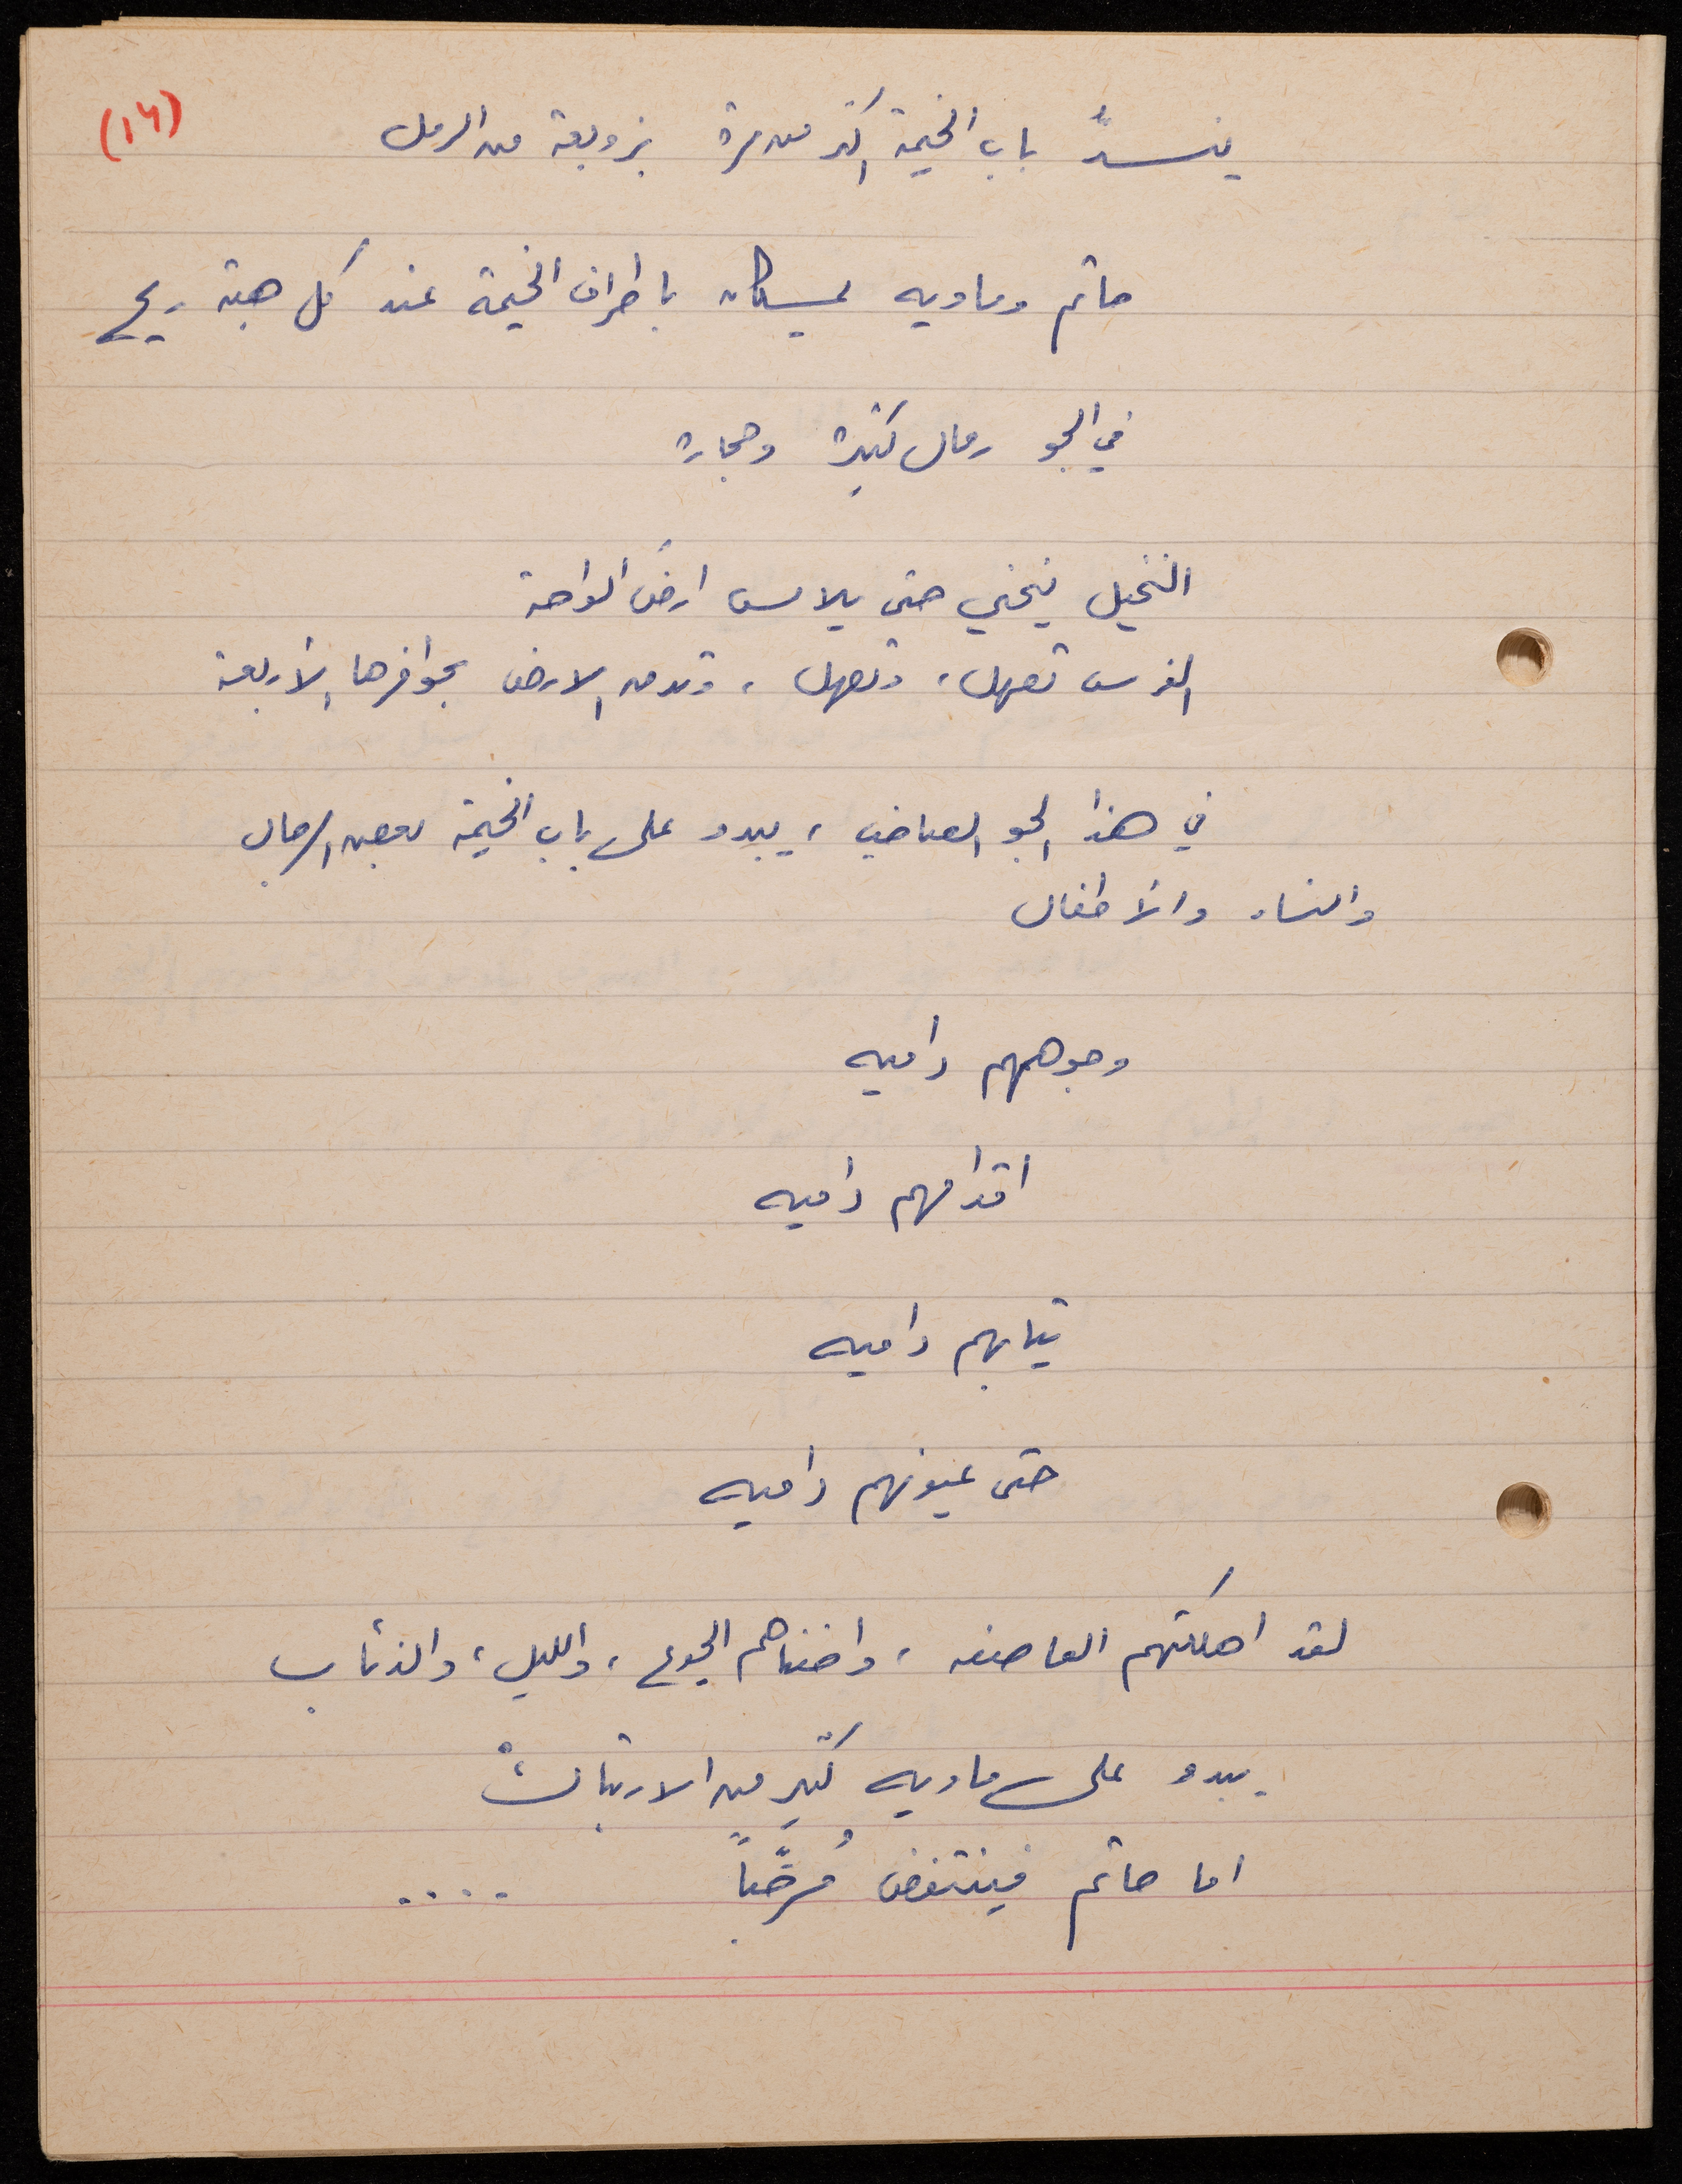 (١٦)
ينسدُّ باب الخيمة اكثر من مرة بزوبعة من الرمل
حاتم وماويه يمسكان باطراف الخيمة عند كل هبة ريح
في الجو رمال كثيرة وحجارة
النخيل ينحني حتى يلامس ارض الواحة
الفرس تصهل، وتصهل، وتدق الارض بحوافرها الأربعة
في هذا الجو الغاضب، يبدو على باب الخيمة بعض الرجال
والنساء والأطفال
وجوههم داميه
اقدامهم داميه
ثيابهم داميه
حتى عيونهم داميه
لقد اهلكتهم العاصفه، واضناهم الجوع، والليل، والذئاب
يبدو على ماويه كثير من الارتباك
اما حاتم فينتفض مُرحِّباً ....